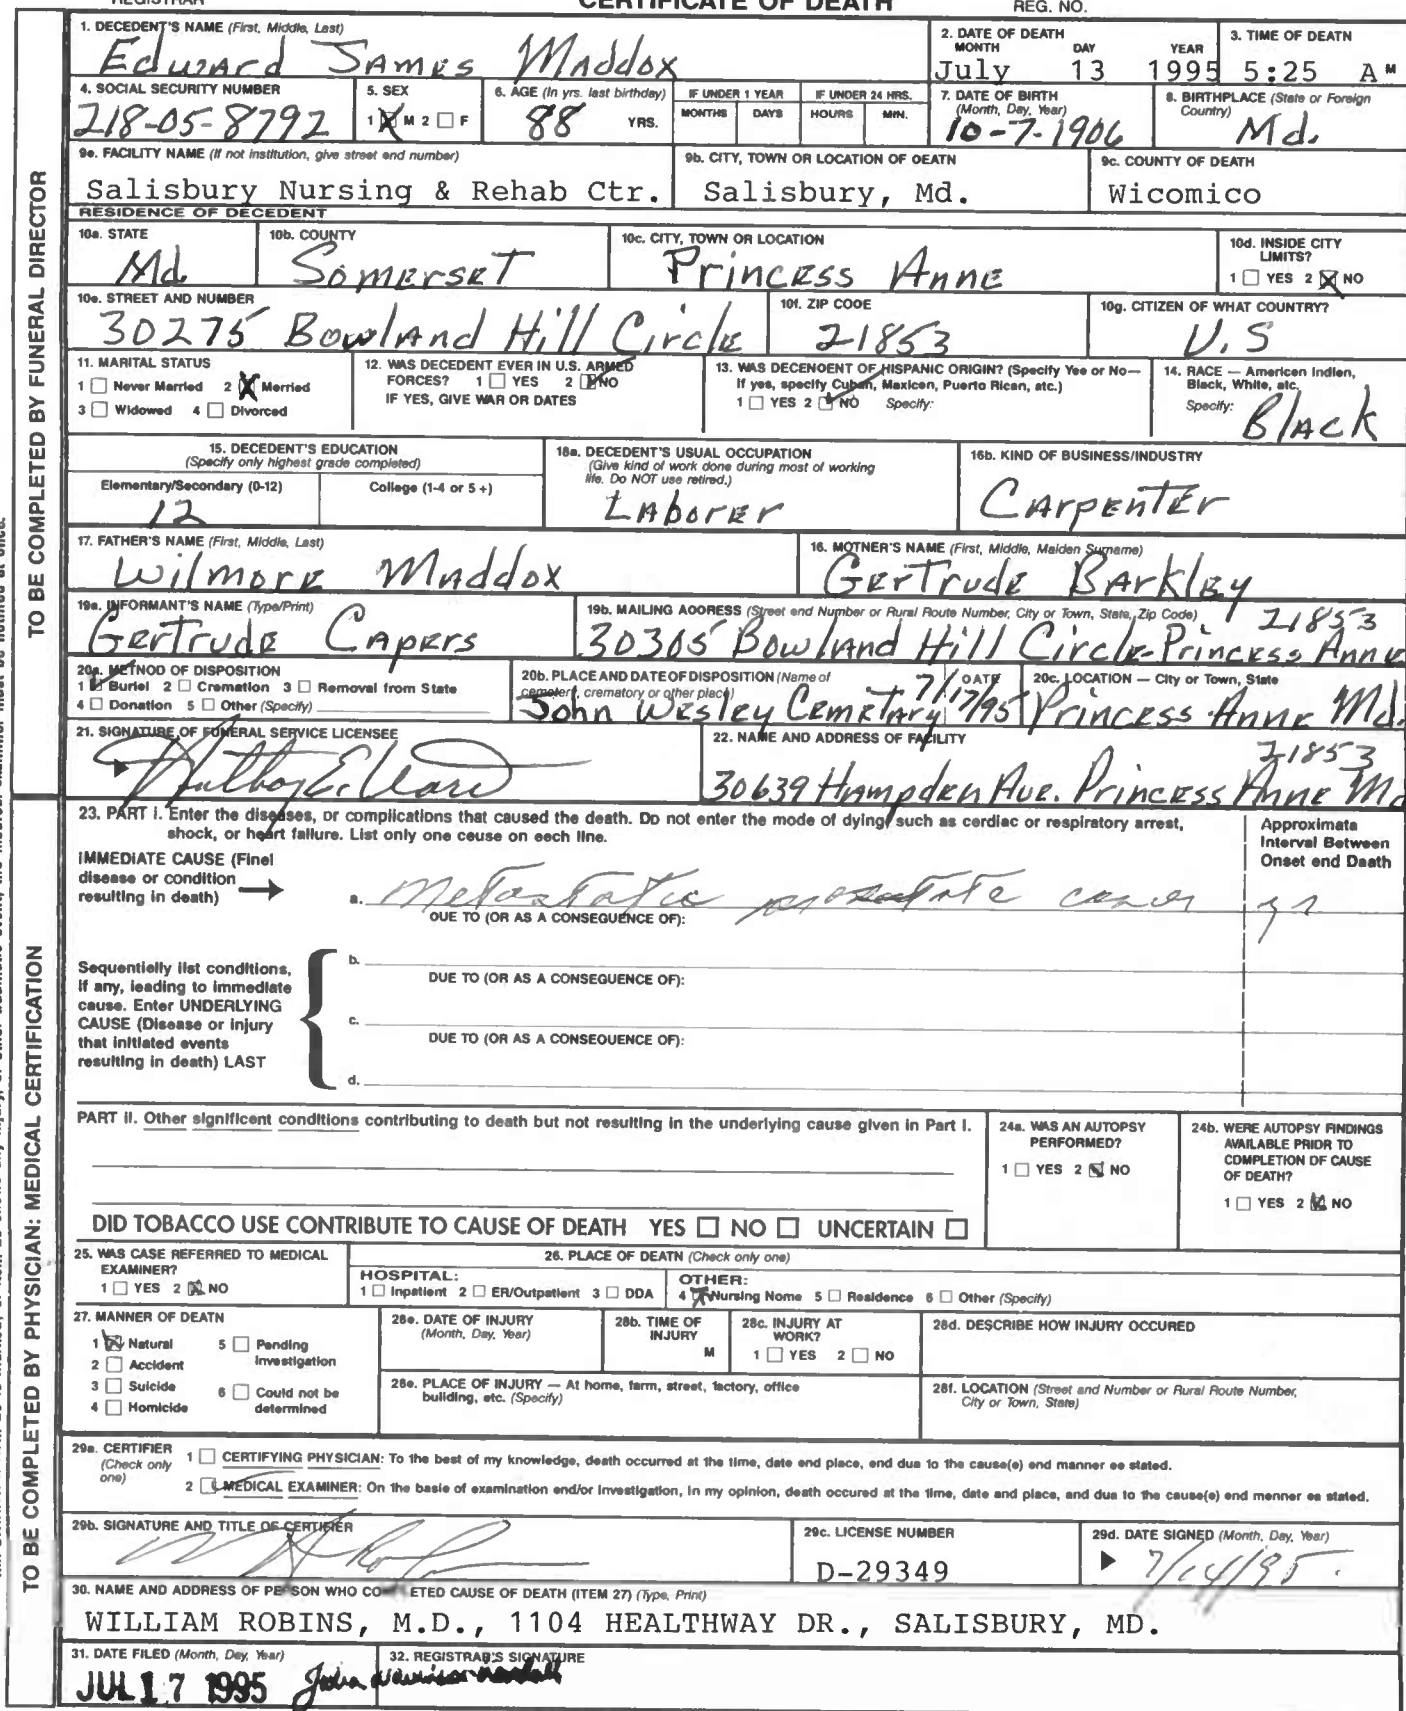 CERTIFICATE OF DEATH
REG. NO.
1. DECEDENT'S NAME (First, Middle, Last)
Edward James Maddox
2. DATE OF DEATH
MONTH DAY YEAR
July 13 1995
3. TIME OF DEATH
5:25 A M
4. SOCIAL SECURITY NUMBER
218-05-8792
5. SEX
1 M 2 F
6. AGE (In yrs. last birthday)
88 YRS.
IF UNDER 1 YEAR
MONTHS DAYS
IF UNDER 24 HRS.
HOURS MIN.
7. DATE OF BIRTH
(Month, Day, Year)
10-7-1906
8. BIRTHPLACE (State or Foreign
Country)
Md.
9a. FACILITY NAME (If not institution, give street and number)
Salisbury Nursing & Rehab Ctr.
9b. CITY, TOWN OR LOCATION OF DEATH
Salisbury, Md.
9c. COUNTY OF DEATH
Wicomico
RESIDENCE OF DECEDENT
10a. STATE
Md
10b. COUNTY
Somerset
10c. CITY, TOWN OR LOCATION
Princess Anne
10d. INSIDE CITY
LIMITS?
1 YES 2 NO
10e. STREET AND NUMBER
30275 Bowland Hill Circle
10f. ZIP CODE
21853
10g. CITIZEN OF WHAT COUNTRY?
U.S
11. MARITAL STATUS
1 Never Married 2 Married
3 Widowed 4 Divorced
12. WAS DECEDENT EVER IN U.S. ARMED
FORCES? 1 YES 2 NO
IF YES, GIVE WAR OR DATES
13. WAS DECENDENT OF HISPANIC ORIGIN? (Specify Yes or No—
If yes, specify Cuban, Mexican, Puerto Rican, etc.)
1 YES 2 NO Specify:
14. RACE — American Indian,
Black, White, etc.
Specify:
Black
15. DECEDENT'S EDUCATION
(Specify only highest grade completed)
Elementary/Secondary (0-12)
12
College (1-4 or 5 +)
16a. DECEDENT'S USUAL OCCUPATION
(Give kind of work done during most of working
life. Do NOT use retired.)
Laborer
16b. KIND OF BUSINESS/INDUSTRY
Carpenter
17. FATHER'S NAME (First, Middle, Last)
Wilmore Maddox
18. MOTHER'S NAME (First, Middle, Maiden Surname)
Gertrude Barkley
19a. INFORMANT'S NAME (Type/Print)
Gertrude Capers
19b. MAILING ADDRESS (Street and Number or Rural Route Number, City or Town, State, Zip Code)
21853
30305 Bowland Hill Circle-Princess Anne
20a. METHOD OF DISPOSITION
1 Burial 2 Cremation 3 Removal from State
4 Donation 5 Other (Specify)
20b. PLACE AND DATE OF DISPOSITION (Name of
cemetery, crematory or other place)
DATE
John Wesley Cemetary 7/17/95
20c. LOCATION — City or Town, State
Princess Anne Md.
21. SIGNATURE OF FUNERAL SERVICE LICENSEE
22. NAME AND ADDRESS OF FACILITY
21853
30639 Hampden Ave. Princess Anne Md
TO BE COMPLETED BY FUNERAL DIRECTOR
23. PART I. Enter the diseases, or complications that caused the death. Do not enter the mode of dying, such as cardiac or respiratory arrest,
shock, or heart failure. List only one cause on each line.
Approximate
Interval Between
Onset and Death
IMMEDIATE CAUSE (Final
disease or condition
resulting in death)
a. Metastatic prostate cancer yr
DUE TO (OR AS A CONSEQUENCE OF):
Sequentially list conditions,
if any, leading to immediate
cause. Enter UNDERLYING
CAUSE (Disease or injury
that initiated events
resulting in death) LAST
b.
DUE TO (OR AS A CONSEQUENCE OF):
c.
DUE TO (OR AS A CONSEQUENCE OF):
d.
PART II. Other significant conditions contributing to death but not resulting in the underlying cause given in Part I.
24a. WAS AN AUTOPSY
PERFORMED?
1 YES 2 NO
24b. WERE AUTOPSY FINDINGS
AVAILABLE PRIOR TO
COMPLETION OF CAUSE
OF DEATH?
1 YES 2 NO
DID TOBACCO USE CONTRIBUTE TO CAUSE OF DEATH YES NO UNCERTAIN
25. WAS CASE REFERRED TO MEDICAL
EXAMINER?
1 YES 2 NO
26. PLACE OF DEATH (Check only one)
HOSPITAL:
1 Inpatient 2 ER/Outpatient 3 DOA
OTHER:
4 Nursing Home 5 Residence 6 Other (Specify)
27. MANNER OF DEATH
1 Natural 5 Pending
Investigation
2 Accident
3 Suicide 6 Could not be
determined
4 Homicide
28a. DATE OF INJURY
(Month, Day, Year)
28b. TIME OF
INJURY
M
28c. INJURY AT
WORK?
1 YES 2 NO
28d. DESCRIBE HOW INJURY OCCURED
28e. PLACE OF INJURY — At home, farm, street, factory, office
building, etc. (Specify)
28f. LOCATION (Street and Number or Rural Route Number,
City or Town, State)
29a. CERTIFIER
(Check only
one)
1 CERTIFYING PHYSICIAN: To the best of my knowledge, death occurred at the time, date and place, and due to the cause(s) and manner as stated.
2 MEDICAL EXAMINER: On the basis of examination and/or investigation, in my opinion, death occured at the time, date and place, and due to the cause(s) and manner as stated.
29b. SIGNATURE AND TITLE OF CERTIFIER
29c. LICENSE NUMBER
D-29349
29d. DATE SIGNED (Month, Day, Year)
7/14/95
30. NAME AND ADDRESS OF PERSON WHO COMPLETED CAUSE OF DEATH (ITEM 27) (Type, Print)
WILLIAM ROBINS, M.D., 1104 HEALTHWAY DR., SALISBURY, MD.
31. DATE FILED (Month, Day, Year)
JUL 17 1995
32. REGISTRAR'S SIGNATURE
TO BE COMPLETED BY PHYSICIAN: MEDICAL CERTIFICATION